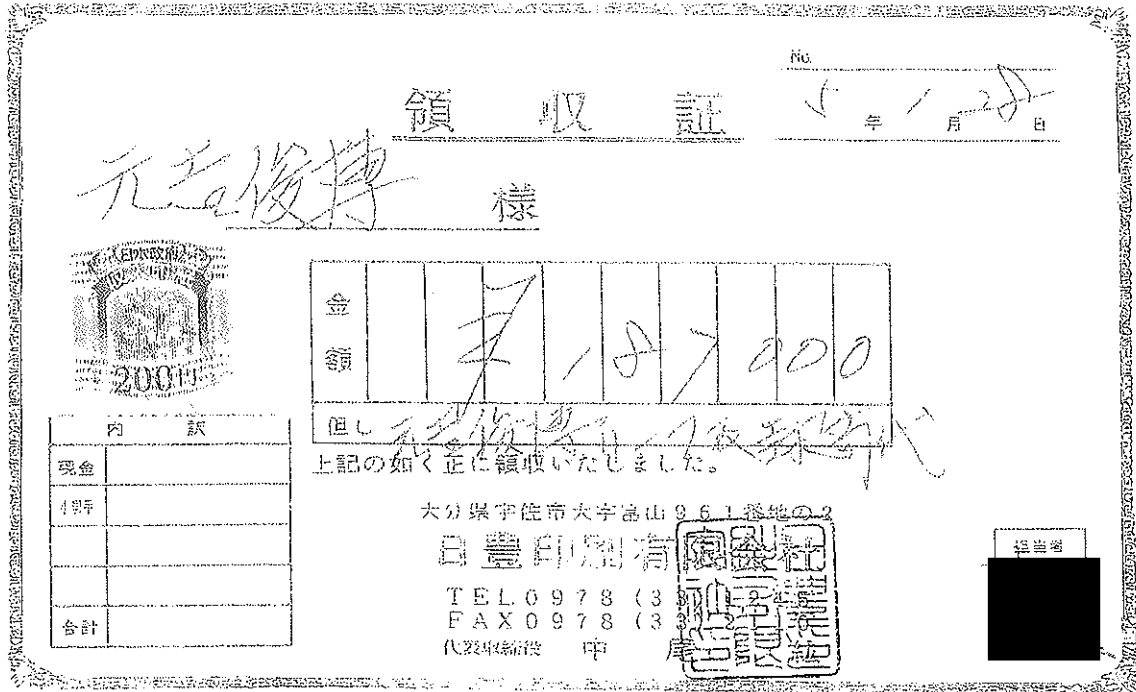 No.
領収証
5年1月28日
元吉俊博 様
日本政府
収入印紙
200円
金額 ¥187000
但し 元吉俊博
上記の如く正に領収いたしました。
内訳
現金
小切手
合計
大分県宇佐市大字富山961番地の2
日豊印刷有限会社
TEL0978(33
FAX0978(33
代表取締役 中尾
担当者